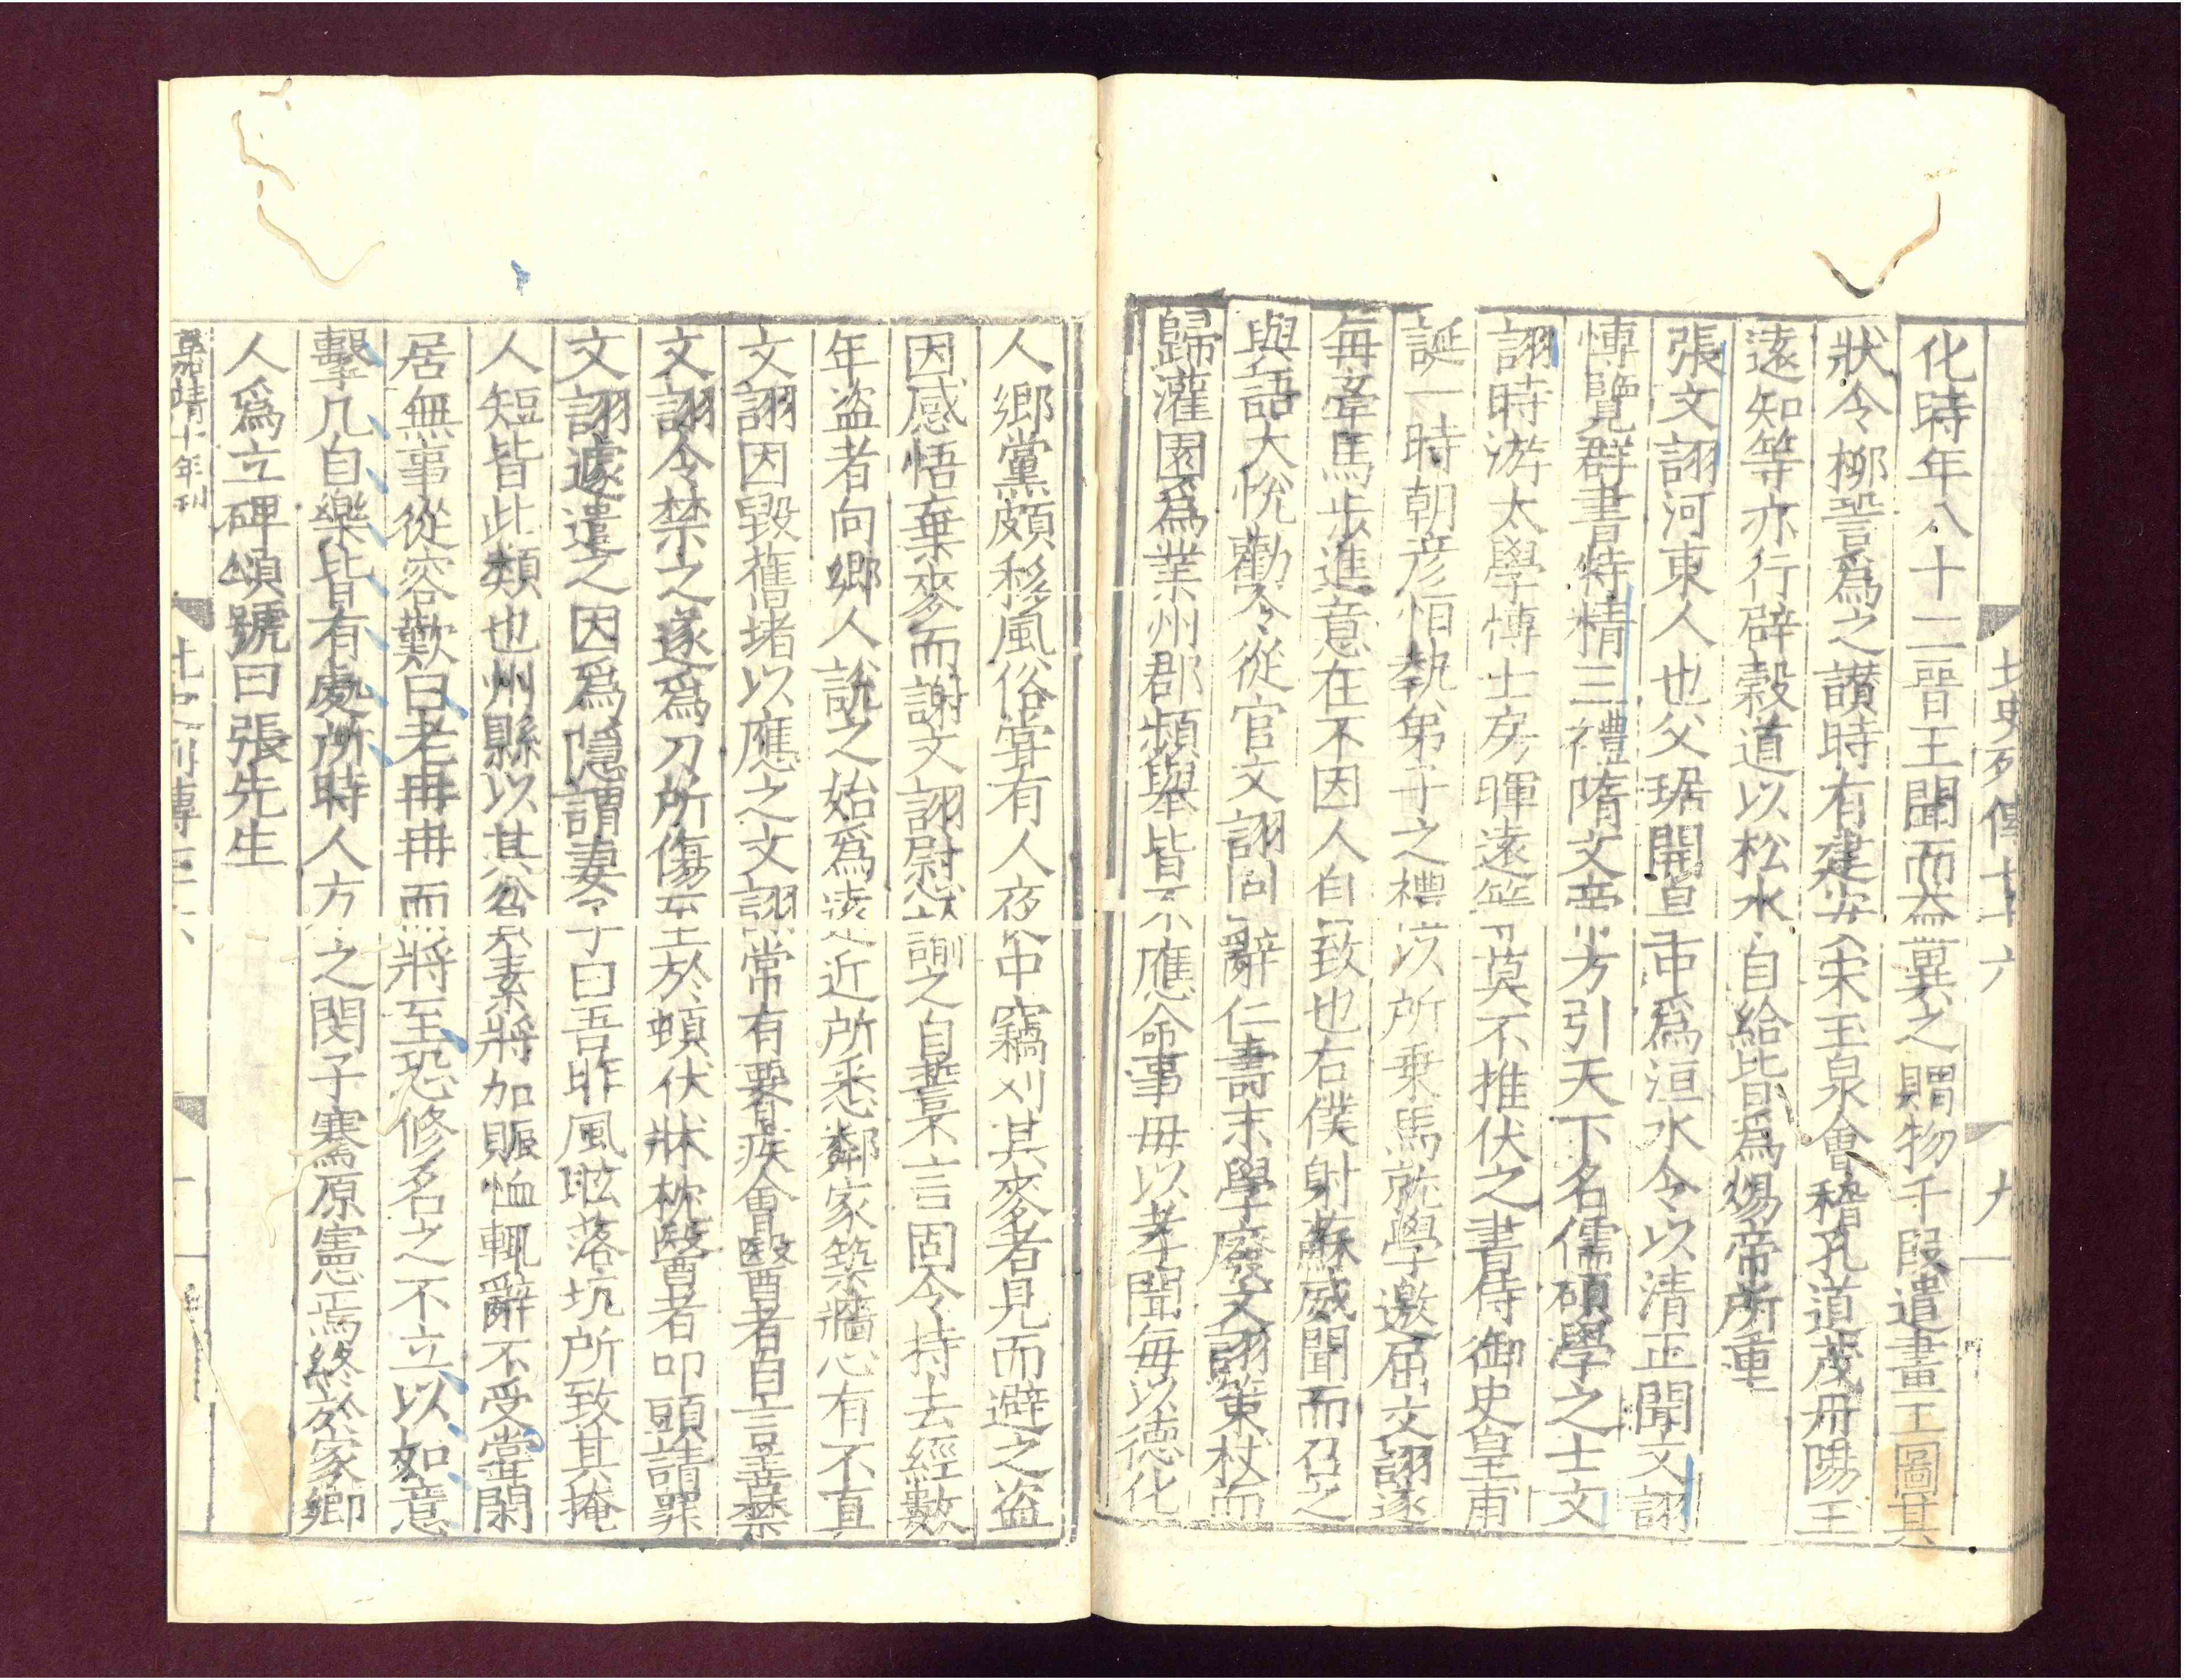 北史列傳七十六
九
化時年八十二晉王聞而益異之賵物千段遣畫工圖其
狀令柳䛒爲之讃時有建安宋玉泉會稽孔道茂丹陽王
遠知等亦行辟穀道以松水自給皆爲煬帝所重
張文詡河東人也父琚開皇中爲洹水令以清正聞文詡
博覽群書特精三禮隋文帝方引天下名儒碩學之士文
詡時游太學博士房暉遠等莫不推伏之書侍御史皇甫
誕一時朝彥恒執弟子之禮以所乗馬就學邀屈文詡遂
每牽馬步進意在不因人自致也右僕射蘇威聞而召之
與語大悅勸令從官文詡固辭仁壽末學廢文詡策杖而
歸灌園爲業州郡頻舉皆不應命事毋以孝聞每以德化
人鄉黨頗移風俗甞有人夜中竊刈其麥者見而避之盜
因感悟棄麥而謝文詡慰諭之自誓不言固令持去經數
年盜者向鄉人說之始爲遠近所悉鄰家築牆心有不直
文詡因毀舊堵以應之文詡常有腰疾會醫者自言善禁
文詡令禁之遂爲刀所傷至於頓伏牀枕醫者叩頭請罪
文詡遽遣之因爲隱謂妻子曰吾昨風眩落坑所致其掩
人短皆此類也州縣以其貧素將加賑恤輒辭不受甞閑
居無事從容歎曰老冉冉而將至恐修名之不立以如意
擊几自樂皆有處所時人方之閔子騫原憲焉終於家鄉
人爲立碑頌號曰張先生
嘉靖十年刊
北史列傳七十六